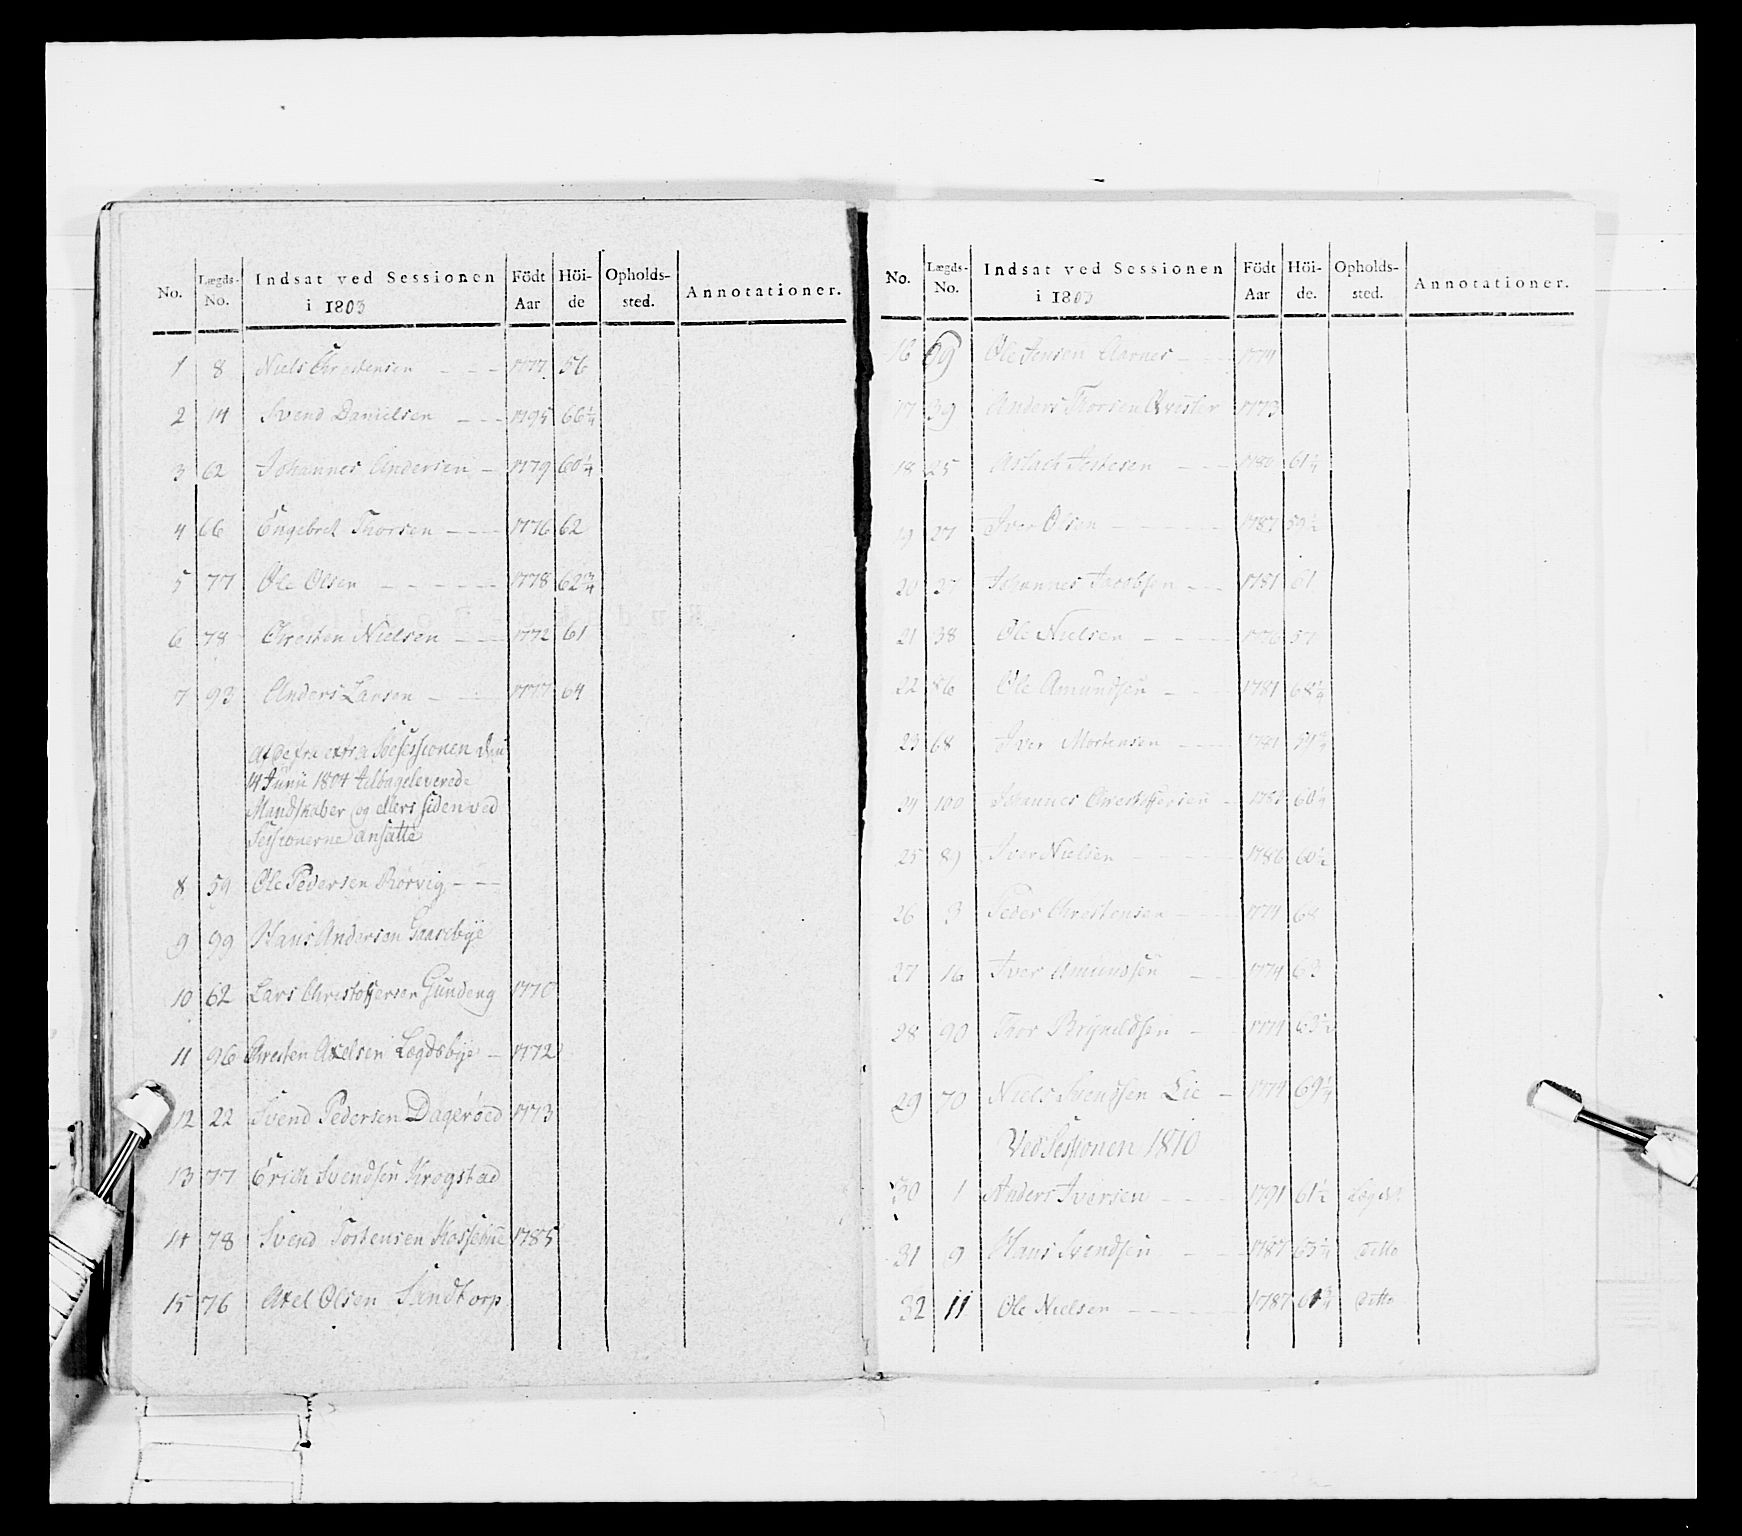 No. Lægds-No. Indsat ved Sessionen i 1803 Födt Aar Höi-de Opholds-sted. Annotationer.
1 8 Niels Chrestensen - - - 1777 56
2 14 Svend Danielsen - - - 1795 66¼
3 62 Johannes Andersen - 1779 60¼
4 66 Engebret Thorsen - - - 1776 62
5 77 Ole Olsen - - - - - 1778 62¾
6 78 Chresten Nielsen - - - 1772 61
7 93 Anders Larsen - - - 1777 64
At de fra extra Sessionen den
14 Junii 1804 tilbageleverede
Mandskaber og ellers siden ved
Sessionerne ansatte
8 59 Ole Pedersen Rörvig - - -
9 99 Hans Andersen Gaasebye
10 62 Lars Christoffersen Gundeng 1770
11 96 Chresten Axelsen Lægdsbye - 1772
12 22 Svend Pedersen Dageröed 1773
13 77 Erich Svendsen Krogstad
14 78 Svend Tostensen Kossebue 1785
15 76 Axel Olsen Sandtorp
No. Lægds-No. Indsat ved Sessionen i 1803 Födt Aar Höi-de. Opholds-sted. Annotationer.
16 99 Ole Jensen Aarnes - - - 1774
17 39 Anders Thorsen 1773
18 25 Aslach - - - 1780 61¼
19 27 Iver Olsen - - - - - 1787 59½
20 27 Johannes Jacobsen - - 1781 61
21 38 Ole Nielsen - - - - 1776 57
22 86 Ole Amundsen - - - 1781 68¼
23 68 Iver Mortensen - - -
24 100 Johannes Chrestoffersen - 60¼
25 89 Iver Nielsen - - - - 1786 60½
26 3 Peder Chrestensen - - - 1774 68
27 16 Iver Amundsen - - 1774 63
28 90 Thor Brynildsen - 1774 63½
29 70 Niels Svendsen Lie - 1774 69¼
Ved Sessionen 1810
30 1 Anders Iversen - - - 1791 61½ Lægdet
31 9 Hans Svendsen - - - 1787 63¼ ditto
32 11 Ole Nielsen - - - - - 1787 ditto